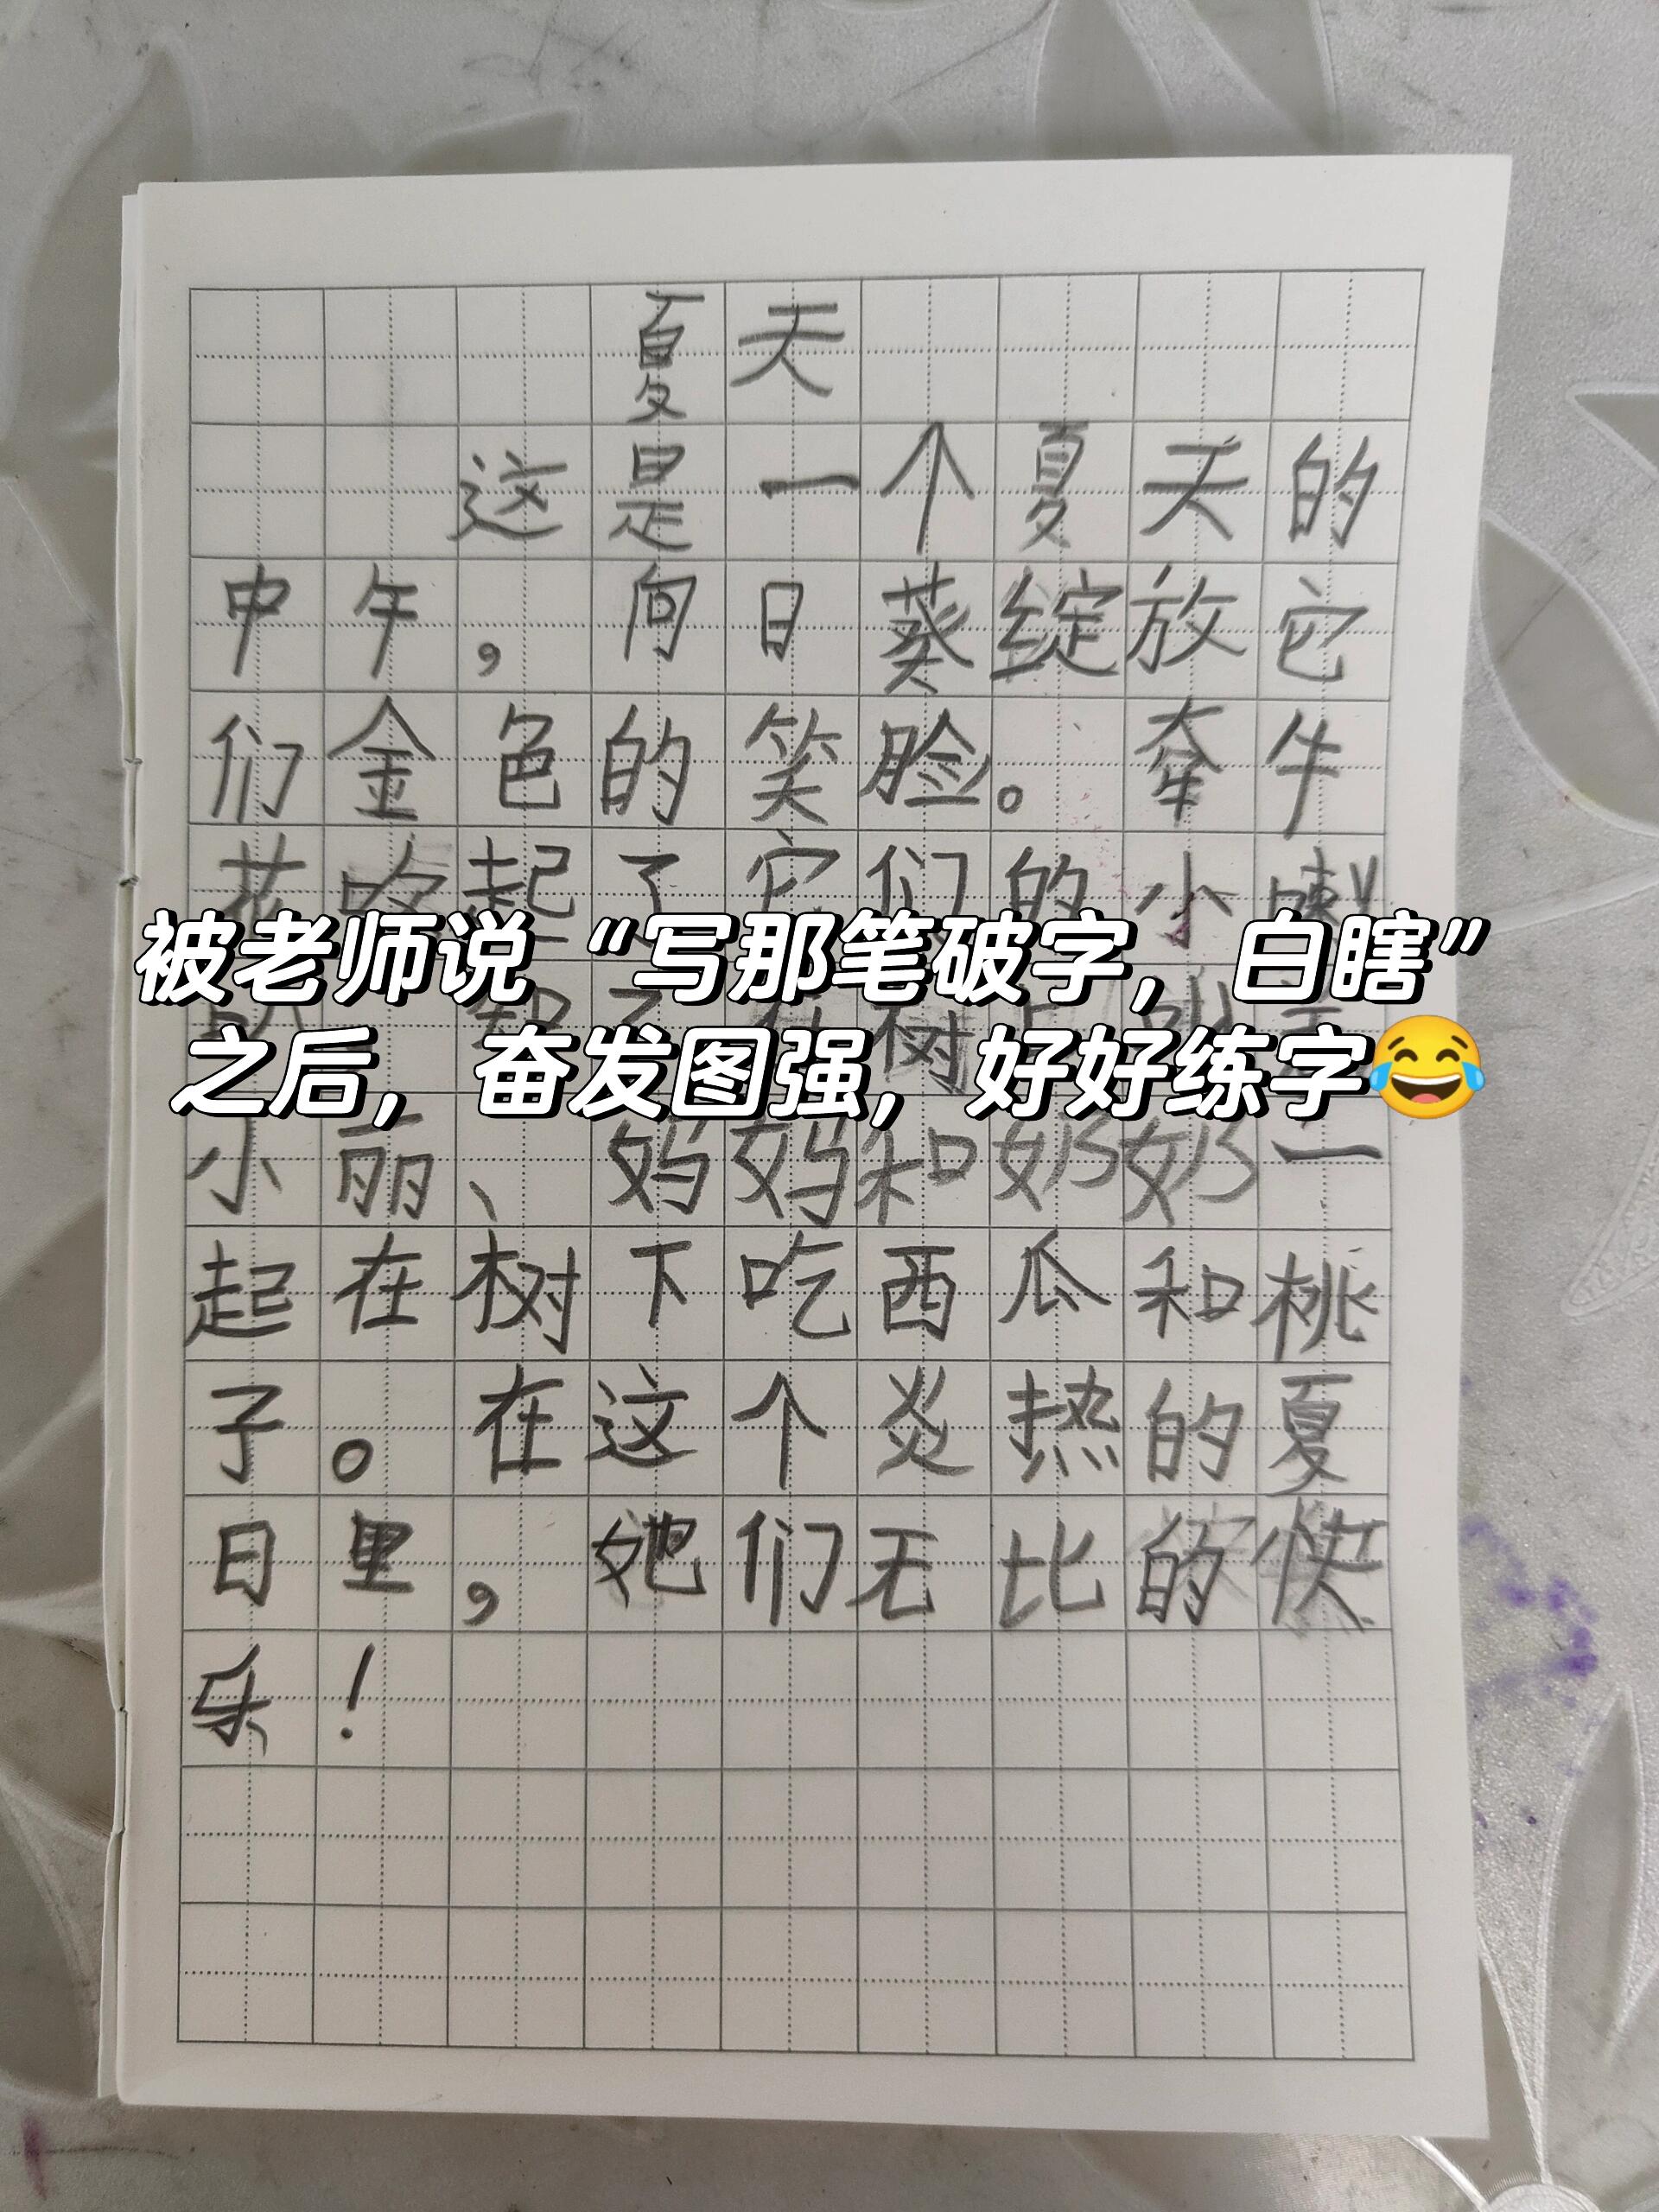 夏天
这是一个夏天的
中午，向日葵绽放它
们金色的笑脸。牵牛
花吹起了它们的小喇
被老师说“写那笔破字，白瞎”
树
之后，奋发图强，好好练字😂
小丽、妈妈和奶奶一
起在树下吃西瓜和桃
子。在这个炎热的夏
日里，她们无比的快
乐！